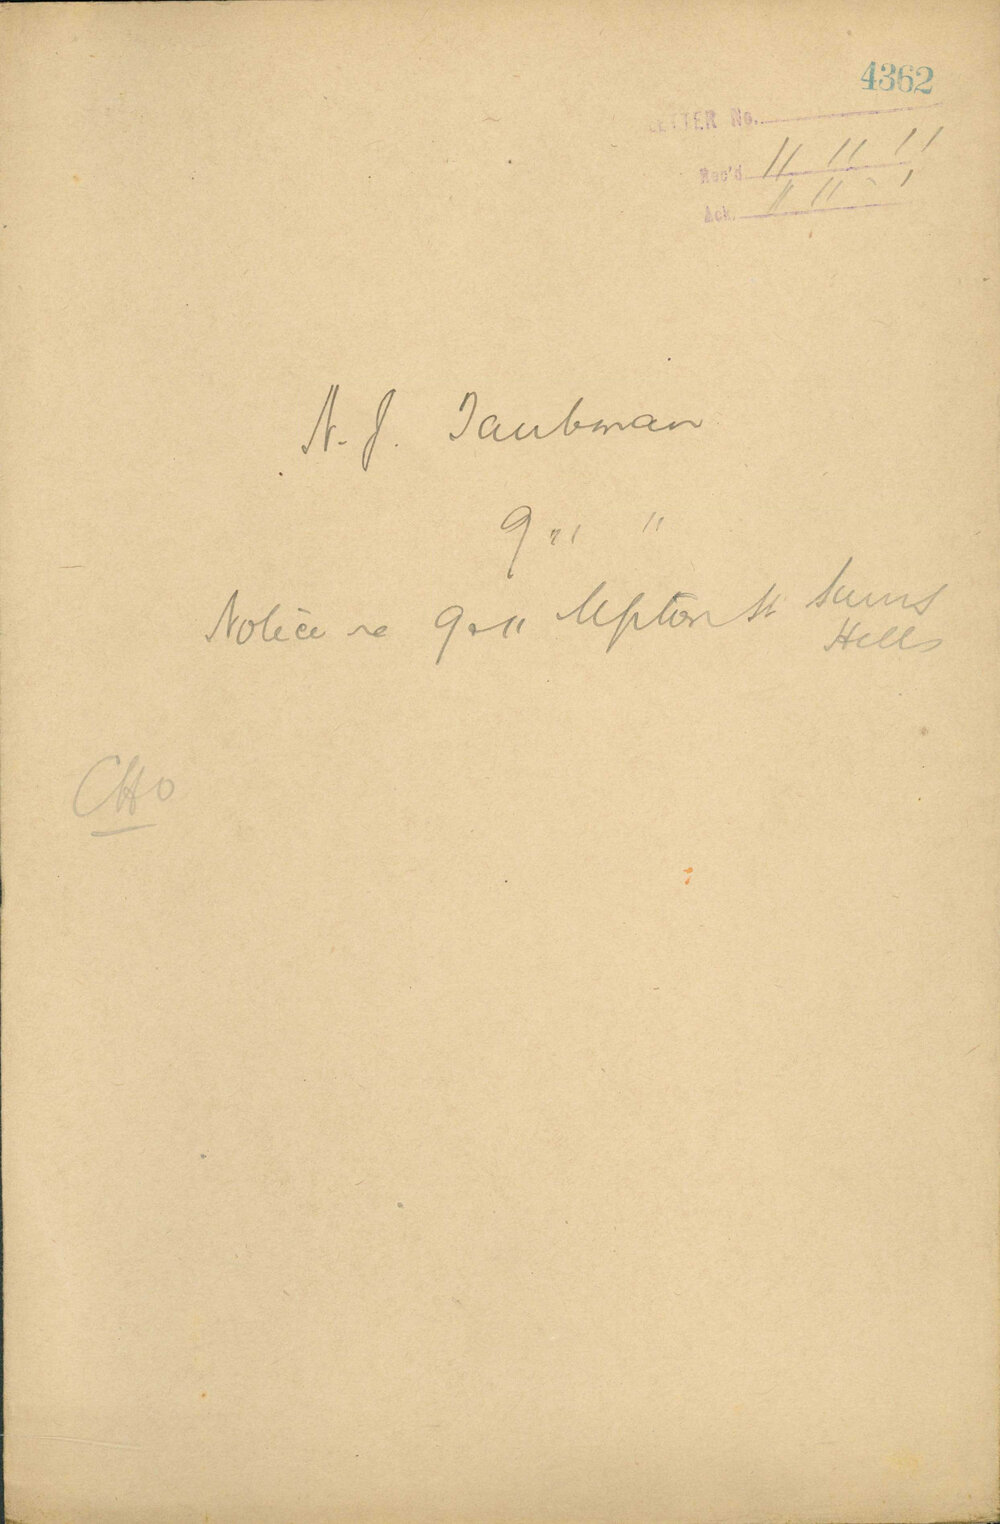 4362
LETTER No.
Rec'd 11 11 11
Ack. 11 11 1
N. J. Taubman
9 " "
Notice re 9 & 11 Upton St Surry
Hills
CHO